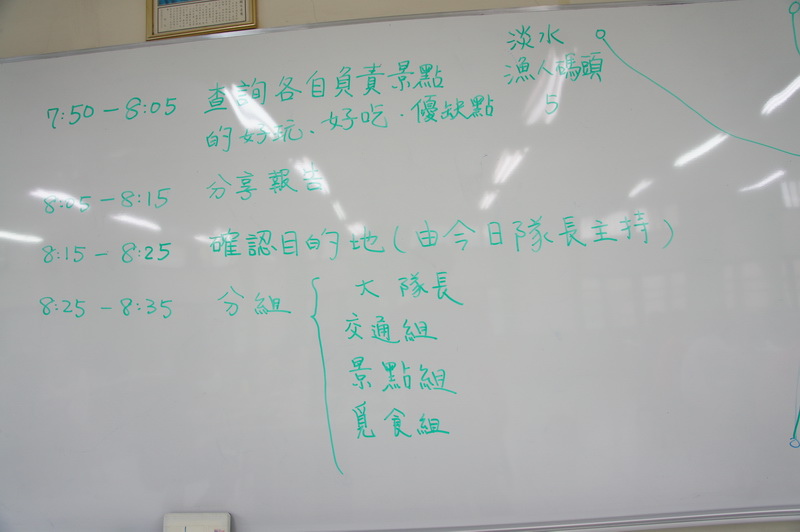 淡水
漁人碼頭
5
7:50－8:05 查詢各自負責景點
的好玩、好吃、優缺點
8:05－8:15 分享報告
8:15－8:25 確認目的地(由今日隊長主持)
8:25－8:35 分組
大隊長
交通組
景點組
覓食組